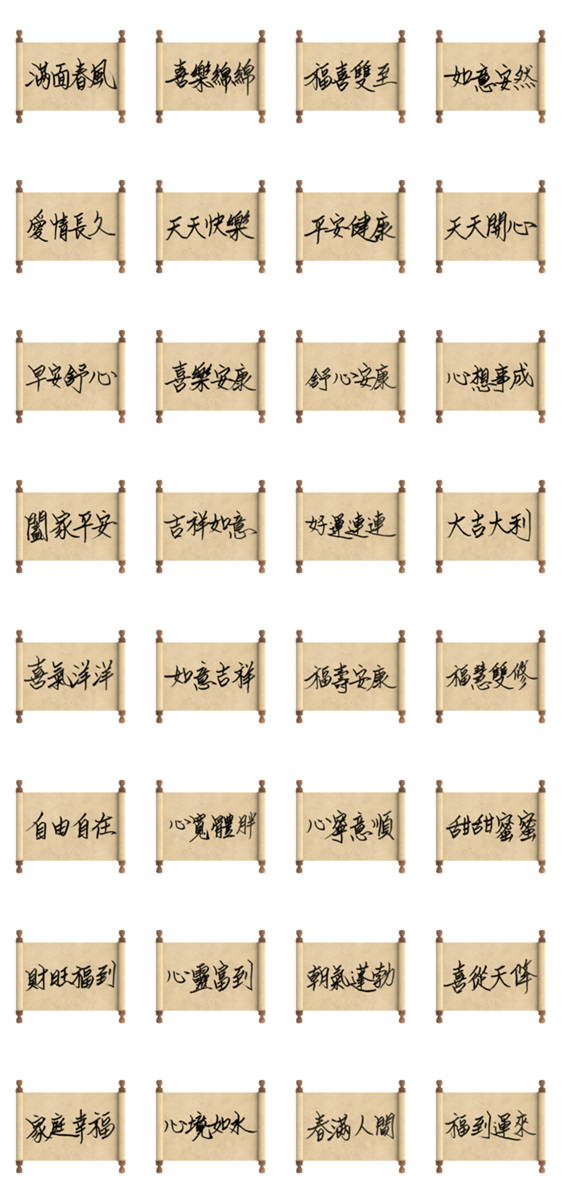 滿面春風
喜樂綿綿
福喜雙至
如意安然
愛情長久
天天快樂
平安健康
天天開心
早安舒心
喜樂安康
舒心安康
心想事成
闔家平安
吉祥如意
好運連連
大吉大利
喜氣洋洋
如意吉祥
福壽安康
福慧雙修
自由自在
心寬體胖
心寧意順
甜甜蜜蜜
財旺福到
心靈富到
朝氣蓬勃
喜從天降
家庭幸福
心境如水
春滿人間
福到運來